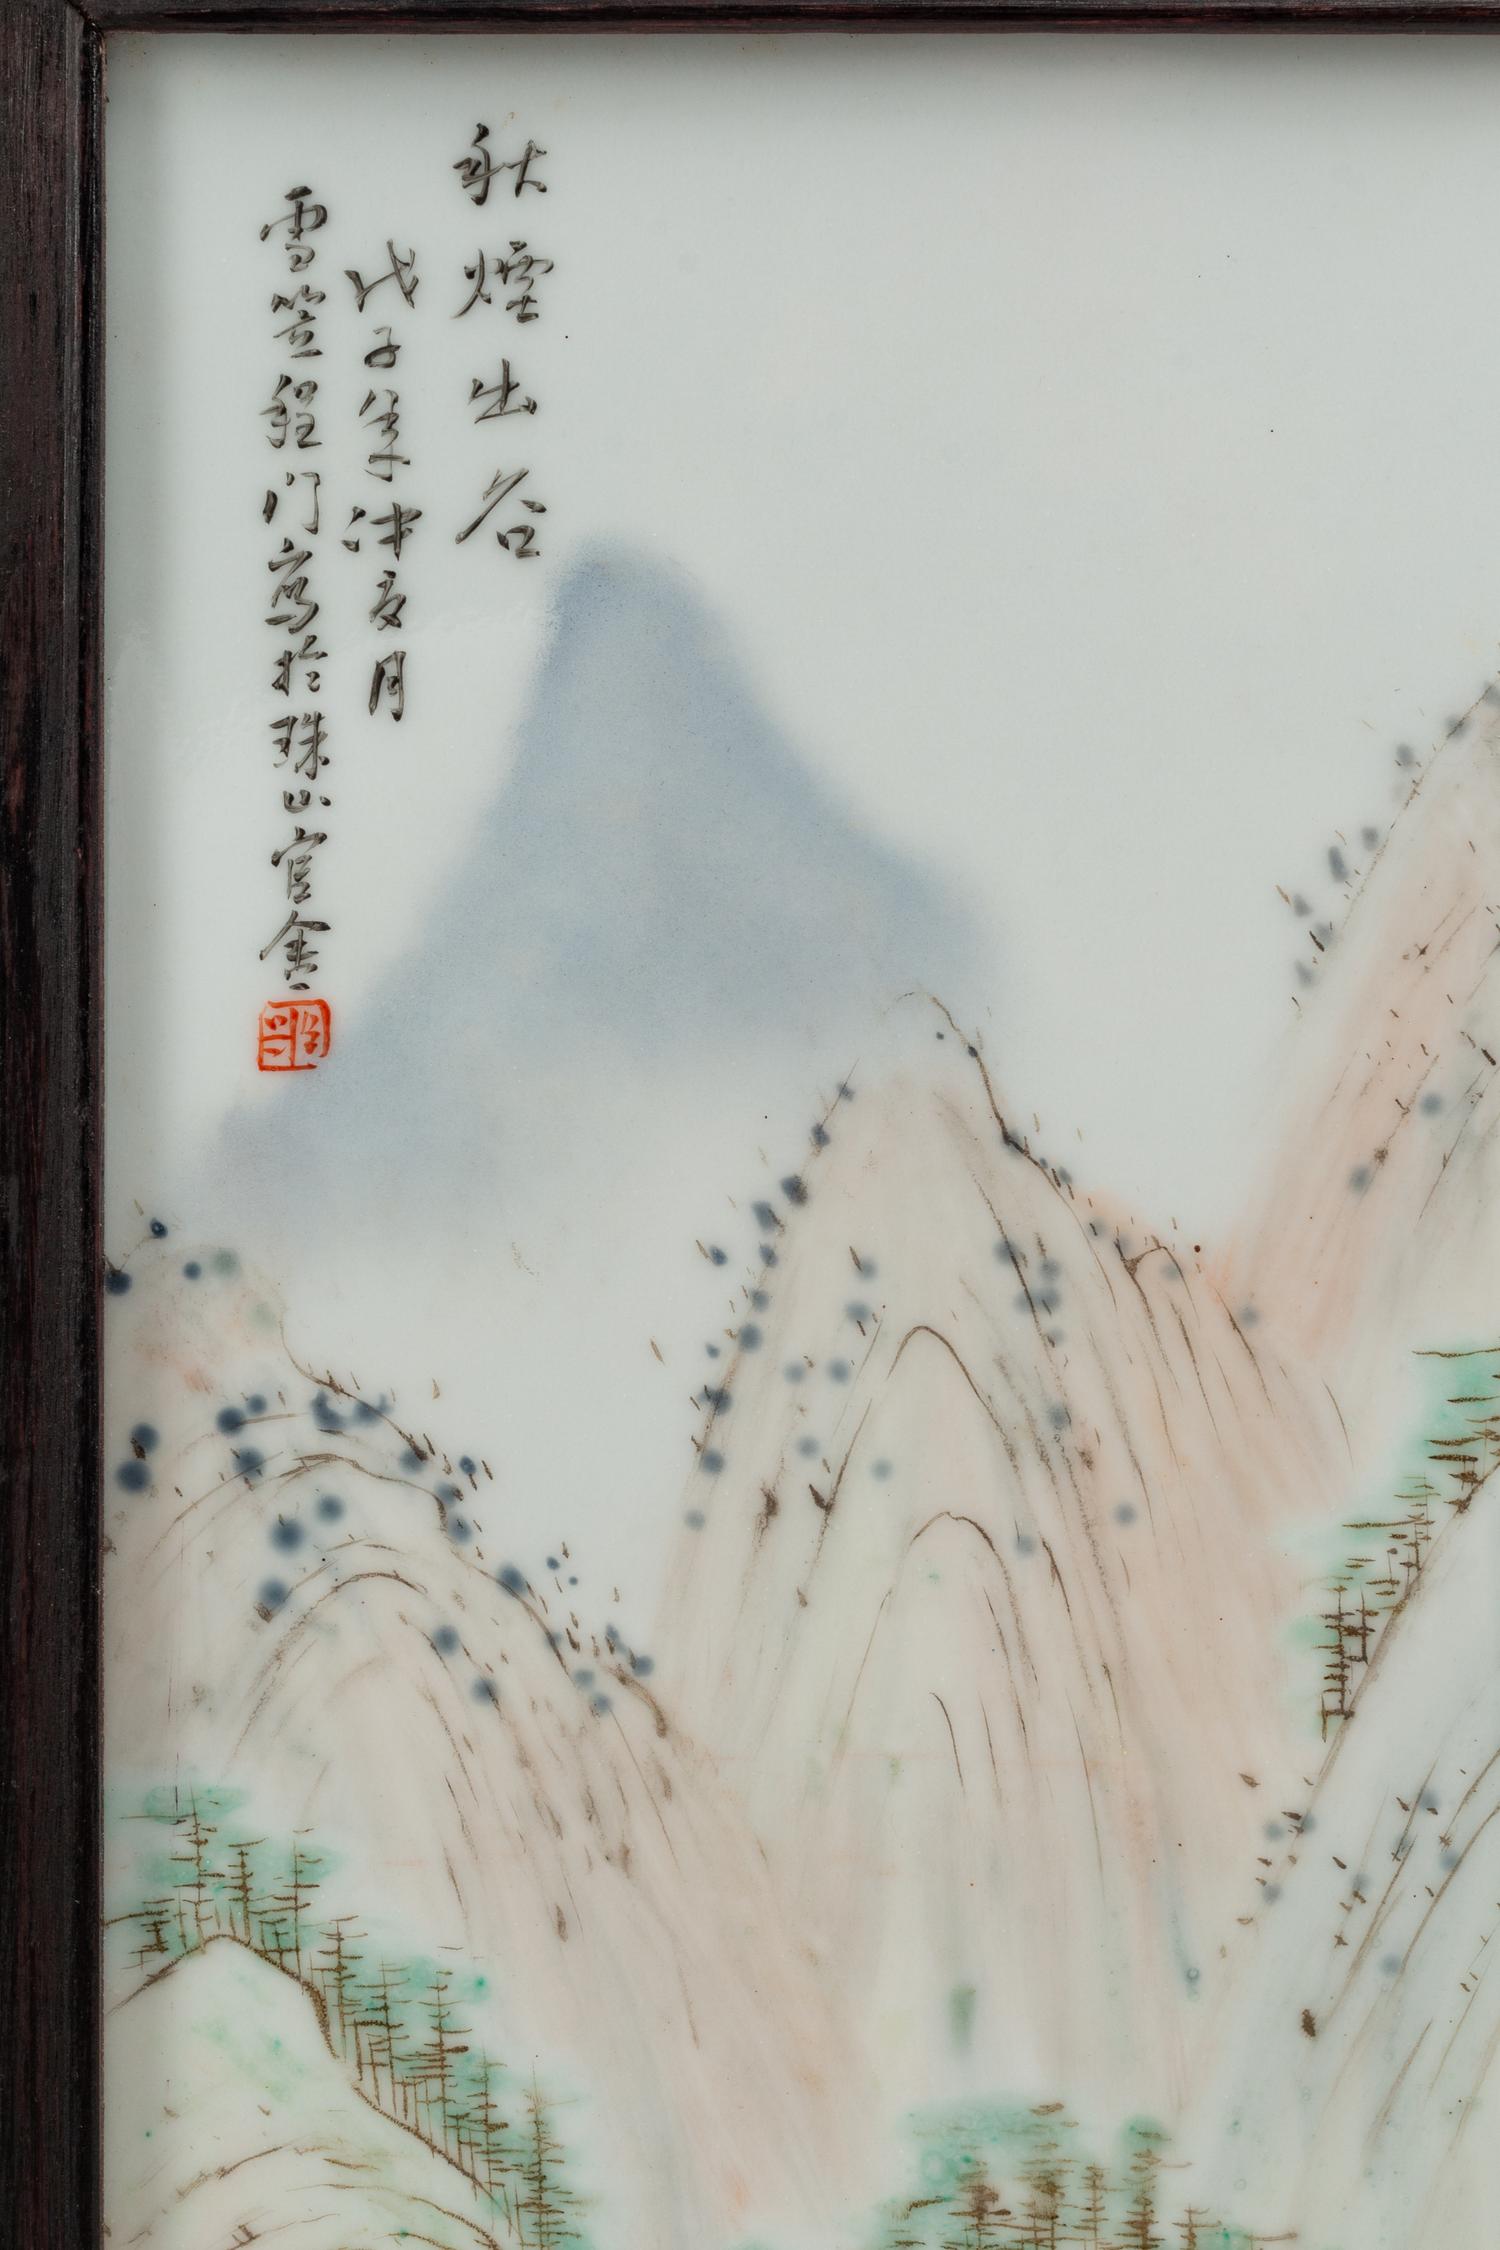 秋煙出谷
戊子年沖夏月
雪笠程門寫於珠山官舍